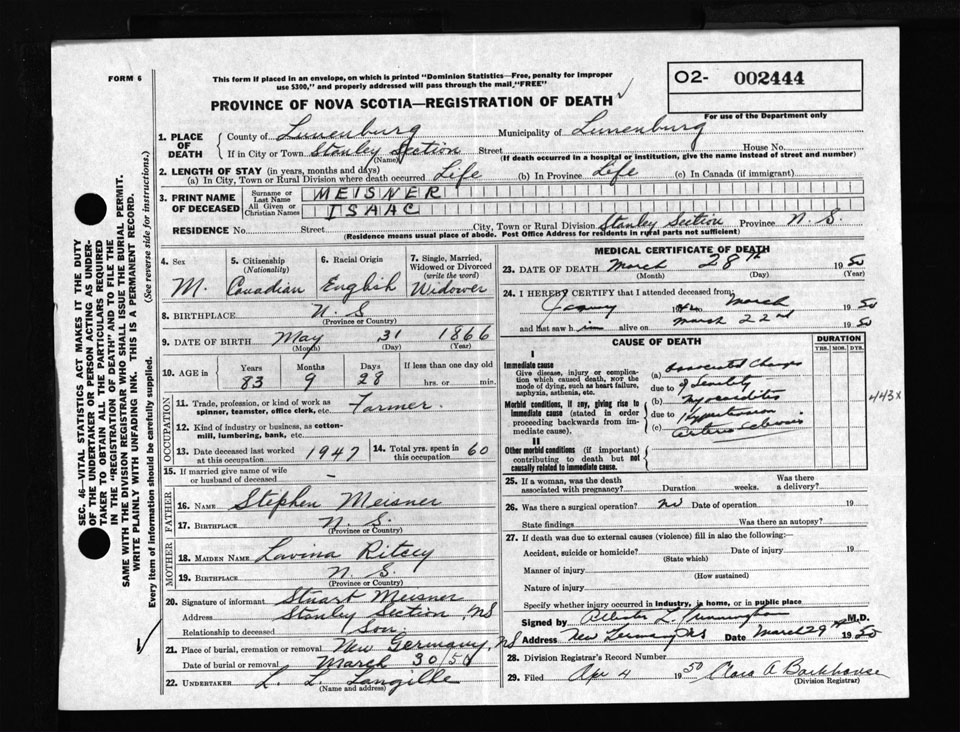 FORM 6
This form if placed in an envelope, on which is printed "Dominion Statistics—Free, penalty for improper
use $300," and properly addressed will pass through the mail, "FREE"
O2- 002444
For use of the Department only
PROVINCE OF NOVA SCOTIA—REGISTRATION OF DEATH
1. PLACE OF DEATH
County of Lunenburg Municipality of Lunenburg
If in City or Town Stanley Section Street House No.
(Name) (If death occurred in a hospital or institution, give the name instead of street and number)
2. LENGTH OF STAY (in years, months and days)
(a) In City, Town or Rural Division where death occurred Life (b) In Province Life (c) In Canada (if immigrant)
3. PRINT NAME OF DECEASED
Surname or Last Name MEISNER
All Given or Christian Names ISAAC
RESIDENCE No. Street City, Town or Rural Division Stanley Section Province N.S.
(Residence means usual place of abode. Post Office Address for residents in rural parts not sufficient)
4. Sex M.
5. Citizenship (Nationality) Canadian
6. Racial Origin English
7. Single, Married, Widowed or Divorced (write the word) Widower
8. BIRTHPLACE N.S
(Province or Country)
9. DATE OF BIRTH May 31 1866
(Month) (Day) (Year)
10. AGE in Years Months Days If less than one day old
83 9 28 hrs. or min.
OCCUPATION
11. Trade, profession, or kind of work as
spinner, teamster, office clerk, etc. Farmer.
12. Kind of industry or business, as cotton-
mill, lumbering, bank, etc.
13. Date deceased last worked at this occupation 1947 14. Total yrs. spent in this occupation 60
15. If married give name of wife
or husband of deceased
FATHER
16. NAME Stephen Meisner
17. BIRTHPLACE N.S.
(Province or Country)
MOTHER
18. MAIDEN NAME Lavina Ritcey
19. BIRTHPLACE N.S.
(Province or Country)
20. Signature of informant Stuart Meisner
Address Stanley Section, NS
Relationship to deceased Son
21. Place of burial, cremation or removal New Germany, NS
Date of burial or removal March 30/50
22. UNDERTAKER L. L. Langille
(Name and address)
MEDICAL CERTIFICATE OF DEATH
23. DATE OF DEATH March 28th 1950
(Month) (Day) (Year)
24. I HEREBY CERTIFY that I attended deceased from
to March 1950
and last saw him alive on March 22nd 1950
CAUSE OF DEATH
DURATION
YRS. MOS. DYS.
I
Immediate cause
Give disease, injury or complica-
tion which caused death, NOT the
mode of dying, such as heart failure,
asphyxia, asthenia, etc.
(a) Associated Changes
due to of Senility
Morbid conditions, if any, giving rise to
immediate cause (stated in order
proceeding backwards from im-
mediate cause).
(b) Myocarditis
due to Hypertension
(c)
443x
II
Other morbid conditions (if important)
contributing to death but not
causally related to immediate cause.
25. If a woman, was the death
associated with pregnancy? Duration weeks. Was there a delivery?
26. Was there a surgical operation? no Date of operation 19
State findings Was there an autopsy?
27. If death was due to external causes (violence) fill in also the following:—
Accident, suicide or homicide? Date of injury 19
(State which)
Manner of injury
(How sustained)
Nature of injury
Specify whether injury occurred in industry, in home, or in public place
Signed by L. Cunningham M.D.
Address New Germany NS Date March 29 1950
28. Division Registrar's Record Number
29. Filed Apr 4 1950 Clara A Barkhouse
(Division Registrar)
SEC. 46—VITAL STATISTICS ACT MAKES IT THE DUTY
OF THE UNDERTAKER OR PERSON ACTING AS UNDER-
TAKER TO OBTAIN ALL THE PARTICULARS REQUIRED
IN THE "REGISTRATION OF DEATH" AND TO FILE THE
SAME WITH THE DIVISION REGISTRAR WHO SHALL ISSUE THE BURIAL PERMIT.
WRITE PLAINLY WITH UNFADING INK. THIS IS A PERMANENT RECORD.
Every item of information should be carefully supplied. (See reverse side for instructions.)